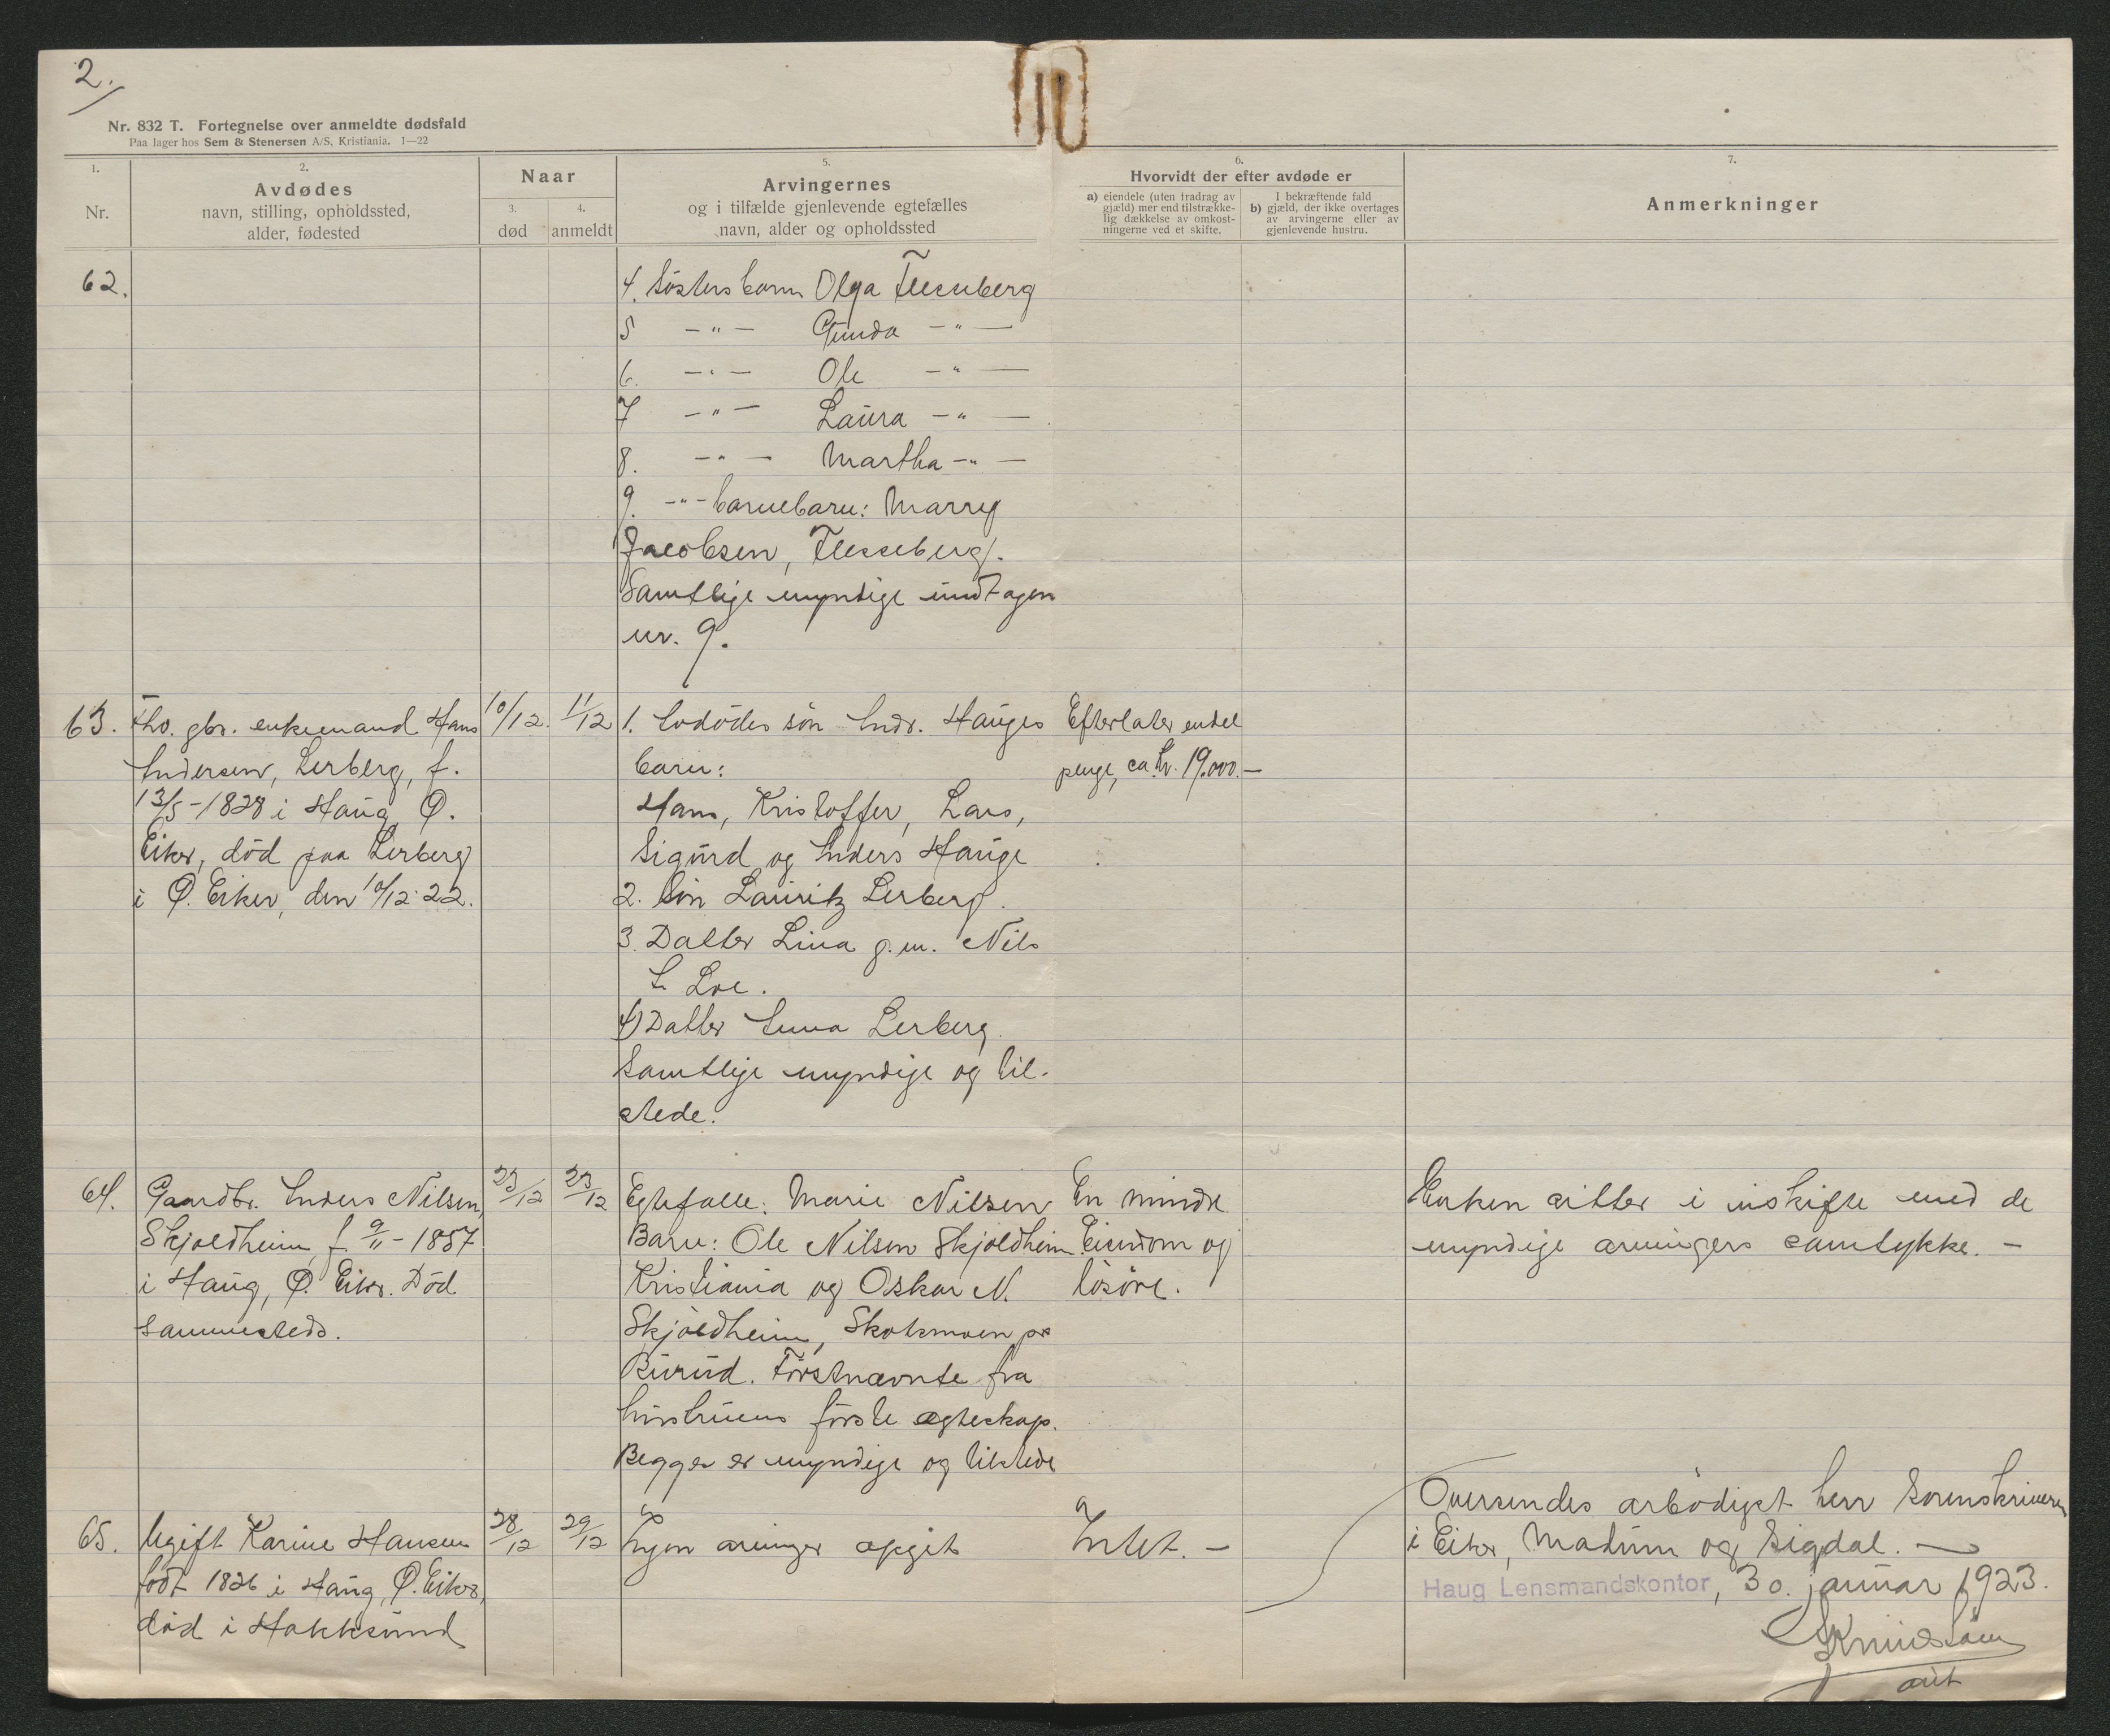 2.
Nr. 832 T. Fortegnelse over anmeldte dødsfald
Paa lager hos Sem & Stenersen A/S, Kristiania. 1—22
1.
Nr.
2.
Avdødes
navn, stilling, opholdssted,
alder, fødested
Naar
3.
død
4.
anmeldt
5.
Arvingernes
og i tilfælde gjenlevende egtefælles
navn, alder og opholdssted
6.
Hvorvidt der efter avdøde er
a) eiendele (uten fradrag av
gjæld) mer end tilstrække-
lig dækkelse av omkost-
ningerne ved et skifte.
I bekræftende fald
b) gjæld, der ikke overtages
av arvingerne eller av
gjenlevende hustru.
7.
Anmerkninger
62.
4. Søsters barn Olga Flesseberg
5 -"- Gunda -"-
6. -"- Ole -"-
7 -"- Laura -"-
8. -"- Martha -"-
9. -"- barnebarn: Marry
Jacobsen, Flesseberg.
Samtlige myndige undtagen
nr. 9.
63.
Fhv. gbr. enkemand Hans
Andersen, Lerberg, f.
13/5-1828 i Haug, Ø.
Eiker, død paa Lerberg
i Ø. Eiker, den 10/12 22.
10/12.
11/12
1. Avdødes søn Andr. Hauges
barn:
Hans, Kristoffer, Lars,
Sigurd og Anders Hauge
2. Søn Lauritz Lerberg.
3. Datter Lina g.m. Nils
A. Loe.
4) Datter Anna Lerberg
Samtlige myndige og til-
stede.
Efterlater endel
penge, ca. kr. 19.000.—
64.
Gaardbr. Anders Nilsen
Skjoldheim f. 9/11-1857
i Haug, Ø. Eiker. Død
sammesteds.
23/12
23/12
Egtefælle: Marie Nilsen
Barn: Ole Nilsen Skjoldheim
Kristiania og Oskar N.
Skjoldheim, Skotsmoen pr
Burud. Førstnævnte fra
hustruens første egteskap.
Begge er myndige og tilstede
En mindre
Eiendom og
løsøre.
Enken sitter i uskifte med de
myndige arvingers samtykke. —
65.
Ugift Karine Hansen
født 1826 i Haug, Ø. Eiker,
død i Hokksund
28/12
29/12
Ingen arvinger opgit
Intet. —
Oversendes ærbødigst herr Sorenskriveren
i Eiker, Modum og Sigdal. —
Haug Lensmandskontor, 30. januar 1923.